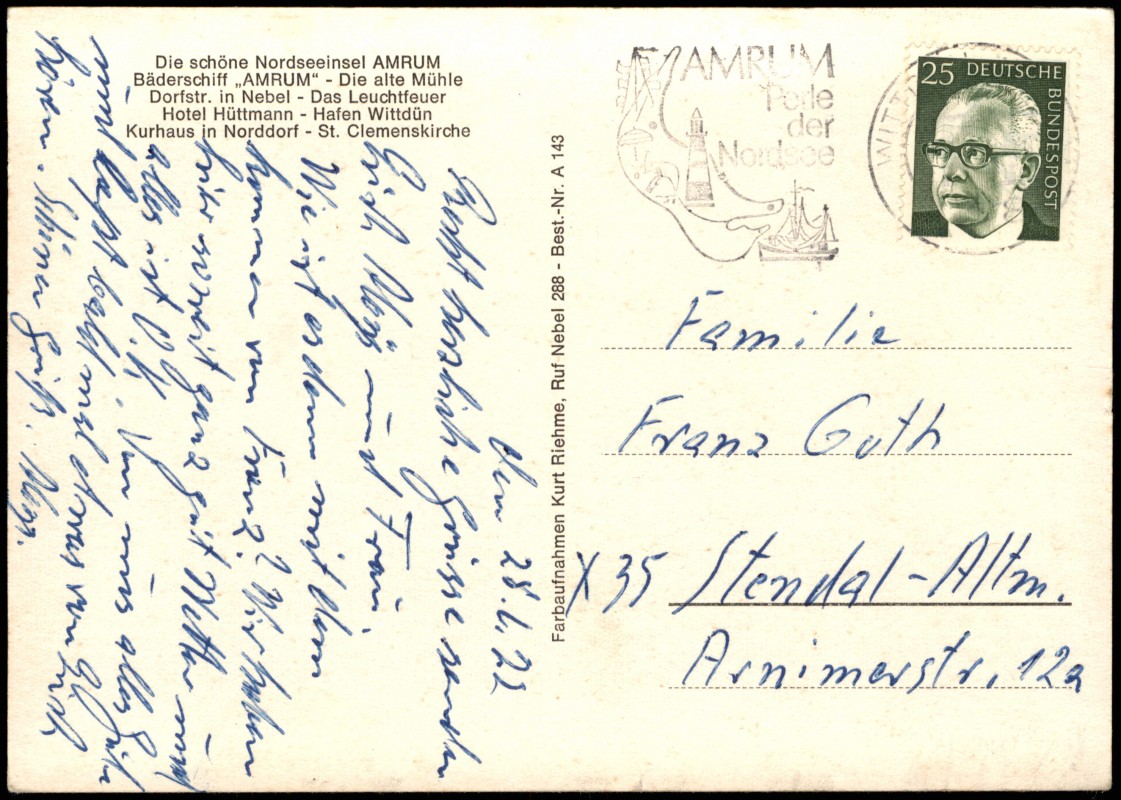 Die schöne Nordseeinsel AMRUM
Bäderschiff „AMRUM“ - Die alte Mühle
Dorfstr. in Nebel - Das Leuchtfeuer
Hotel Hüttmann - Hafen Wittdün
Kurhaus in Norddorf - St. Clemenskirche
Farbaufnahmen Kurt Riehme, Ruf Nebel 288 - Best.-Nr. A 143
AMRUM
Perle
der
Nordsee
WITT
25 DEUTSCHE
BUNDESPOST
Familie
Franz Guth
X 35 Stendal-Altm.
Arnimerstr. 12a
Den 28.6.72
Recht herzliche Grüsse senden
Euch und Frau.
Wie ist es denn mit dem
kommen von Franz? Wir haben
hier soweit ganz gut Wetter und
alles ist O.K. Von uns alles Gute
und lasst bald mal etwas von Euch
hören. Schönen Gruß.